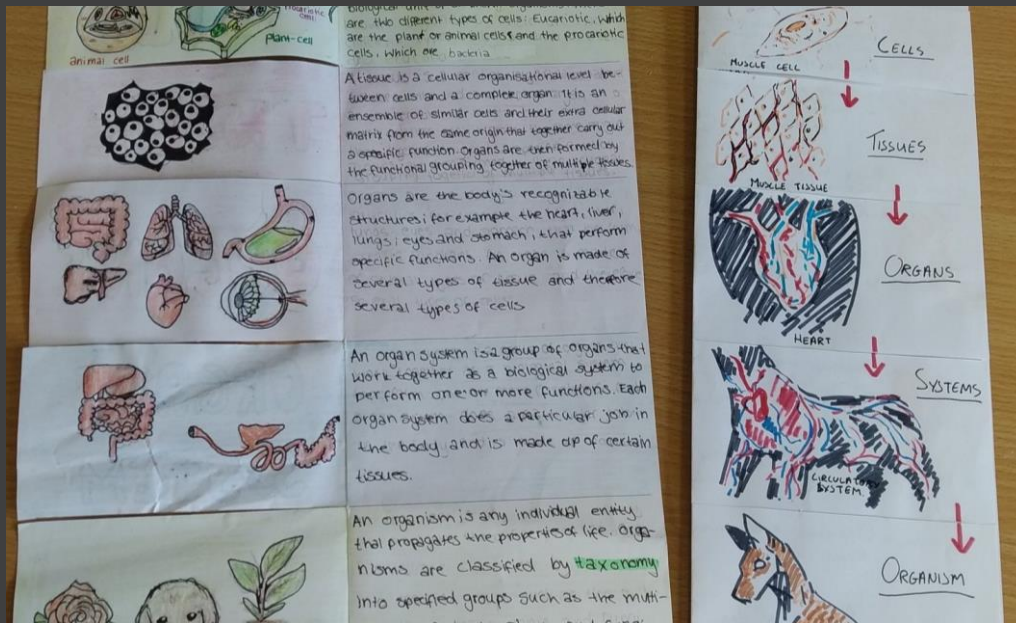 animal cell
plant-cell
are two different types of cells: Eucariotic, which
are the plant or animal cells and the procariotic
cells, which are bacteria
A tissue is a cellular organisational level be-
tween cells and a complete organ. It is an
ensemble of similar cells and their extra cellular
matrix from the same origin that together carry out
a specific function. Organs are then formed by
the functional grouping together of multiple tissues.
Organs are the body's recognizable
structures; for example the heart, liver,
lungs, eyes and stomach, that perform
specific functions. An organ is made of
several types of tissue and therefore
several types of cells
An organ system is a group of organs that
work together as a biological system to
perform one or more functions. Each
organ system does a particular job in
the body, and is made up of certain
tissues.
An organism is any individual entity
that propagates the properties of life. Orga-
nisms are classified by taxonomy
into specified groups such as the multi-
MUSCLE CELL
CELLS
TISSUES
MUSCLE TISSUE
ORGANS
HEART
SYSTEMS
CIRCULATORY
SYSTEM
ORGANISM